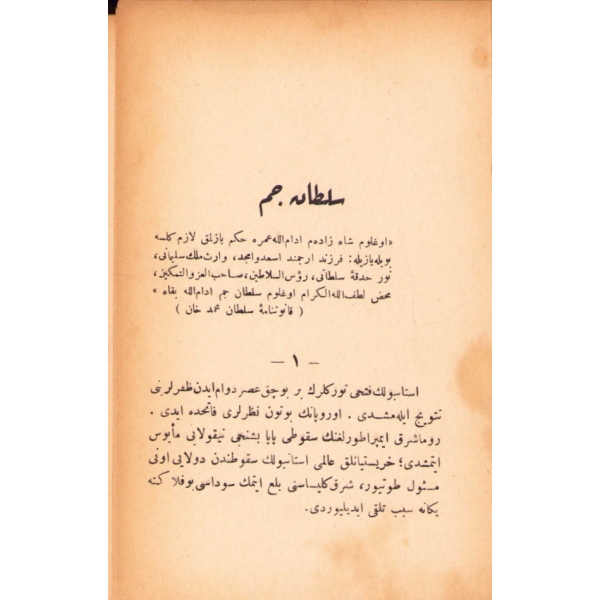 سلطان جم
«اوغلوم شاه زاده‌م ادام‌الله عمره حکم یازلمق لازم کلسه
بویله یازیله: فرزند ارجمند اسعد و امجد، وارث ملك سلیمانی،
نور حدقهٔ سلطانی، رؤس‌السلاطین، صاحب العز و التمکین،
محض لطف‌الله الکرام اوغلوم سلطان جم ادام‌الله بقاه »
( قانوننامهٔ سلطان محمد خان )
— ١ —
استانبولك فتحی تورکلرك بر بوچق عصر دوام ایدن ظفرلرینی
تتویج ایله‌مشدی . اوروپانك بوتون نظرلری فاتحده ایدی .
روما شرق ایمپراطورلغنك سقوطی پاپا بشنجی نیقولایی مأیوس
ایتمشدی؛ خریستیانلق عالمی استانبولك سقوطندن دولایی اونی
مسئول طوتیور، شرق کلیساسنی بلع ایتمك سوداسی بو فلاکته
یکانه سبب تلقی ایدیلیوردی.